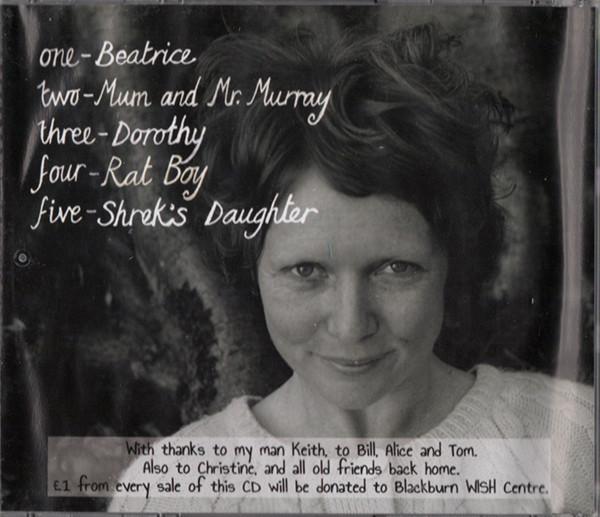 one-Beatrice
two-Mum and Mr. Murray
three-Dorothy
four-Rat Boy
five-Shrek's Daughter
With thanks to my man Keith, to Bill, Alice and Tom.
Also to Christine, and all old friends back home.
£1 from every sale of this CD will be donated to Blackburn WISH Centre.